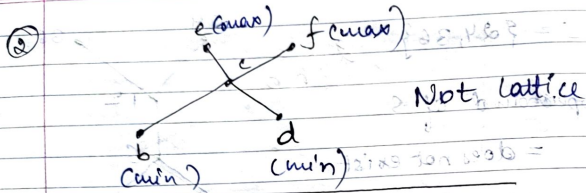 ②
e(max)
f(max)
c
Not lattice
b
(min)
d
(min)